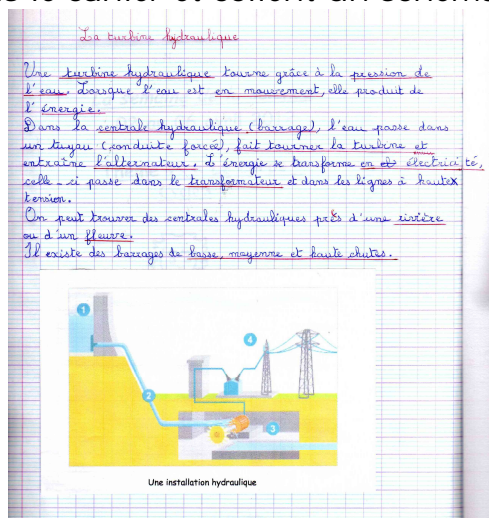 La turbine hydraulique
Une turbine hydraulique tourne grâce à la pression de
l'eau. Lorsque l'eau est en mouvement, elle produit de
l'énergie.
Dans la centrale hydraulique (barrage), l'eau passe dans
un tuyau (conduite forcée), fait tourner la turbine et
entraîne l'alternateur. L'énergie se transforme en électricité,
celle-ci passe dans le transformateur et dans les lignes à hautex
tension.
On peut trouver des centrales hydrauliques près d'une rivière
ou d'un fleuve.
Il existe des barrages de basse, moyenne et haute chutes.
1
4
2
3
Une installation hydraulique